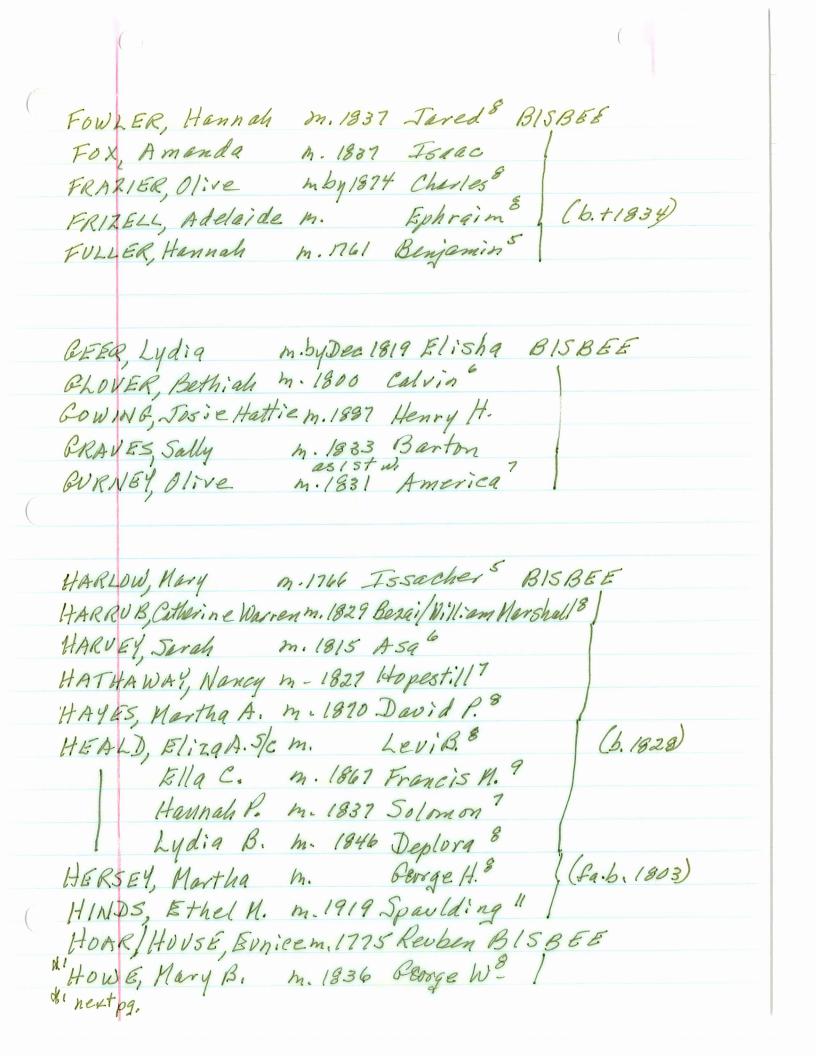 FOWLER, Hannah m. 1837 Jared⁸ BISBEE
FOX, Amanda m. 1837 Isaac
FRAZIER, Olive m by 1874 Charles⁸
FRIZELL, Adelaide m. Ephraim⁸ (b. + 1834)
FULLER, Hannah m. 1761 Benjamin⁵
GEER, Lydia m. by Dec 1819 Elisha BISBEE
GLOVER, Bethiah m. 1800 Calvin⁶
GOWING, Josie Hattie m. 1887 Henry H.
GRAVES, Sally m. 1833 Barton
as 1st w.
GURNEY, Olive m. 1831 America⁷
HARLOW, Mary m. 1766 Issacher⁵ BISBEE
HARRUB, Catherine Warren m. 1829 Bezai/William Marshall⁸
HARVEY, Sarah m. 1815 Asa⁶
HATHAWAY, Nancy m - 1827 Hopestill⁷
HAYES, Martha A. m. 1870 David P.⁸
HEALD, Eliza A. S/c m. Levi B.⁸ (b. 1828)
Ella C. m. 1867 Francis M.⁹
Hannah P. m. 1837 Solomon⁷
Lydia B. m. 1846 Deplora⁸
HERSEY, Martha m. George H.⁸ (fa. b. 1803)
HINDS, Ethel M. m. 1919 Spaulding¹¹
HOAR/HOUSE, Eunice m. 1775 Reuben BISBEE
*1 HOWE, Mary B. m. 1836 George W⁸-
*1 next pg.